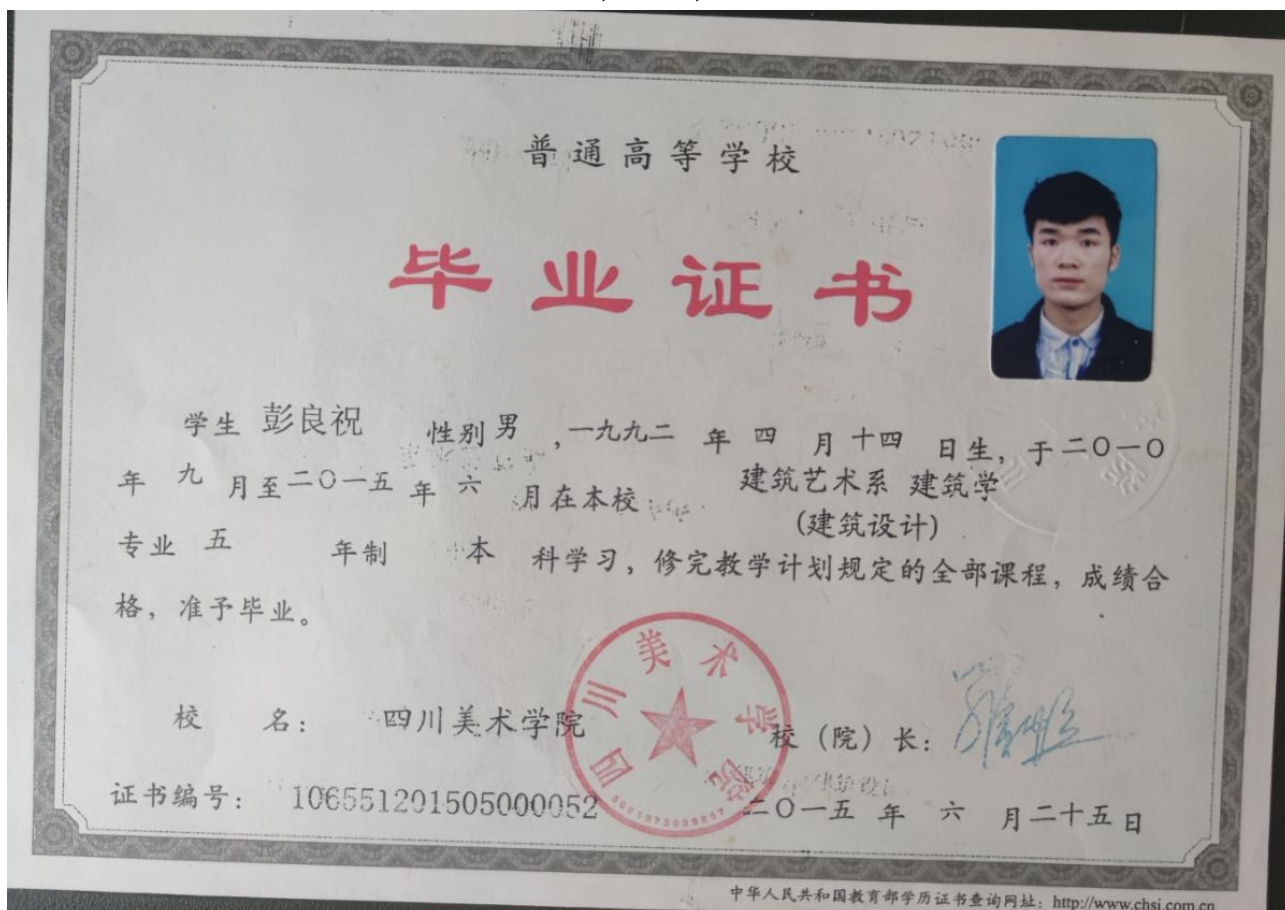 普通高等学校
毕业证书
学生 彭良祝 性别 男 ,一九九二 年 四 月 十四 日生, 于二〇一〇
年 九 月至二〇一五 年 六 月在本校 建筑艺术系 建筑学
(建筑设计)
专业 五 年制 本 科学习, 修完教学计划规定的全部课程, 成绩合
格, 准予毕业。
四川美术学院
校 名: 四川美术学院
校(院)长:
证书编号: 106551201505000052
二〇一五 年 六 月二十五日
中华人民共和国教育部学历证书查询网址: http://www.chsi.com.cn